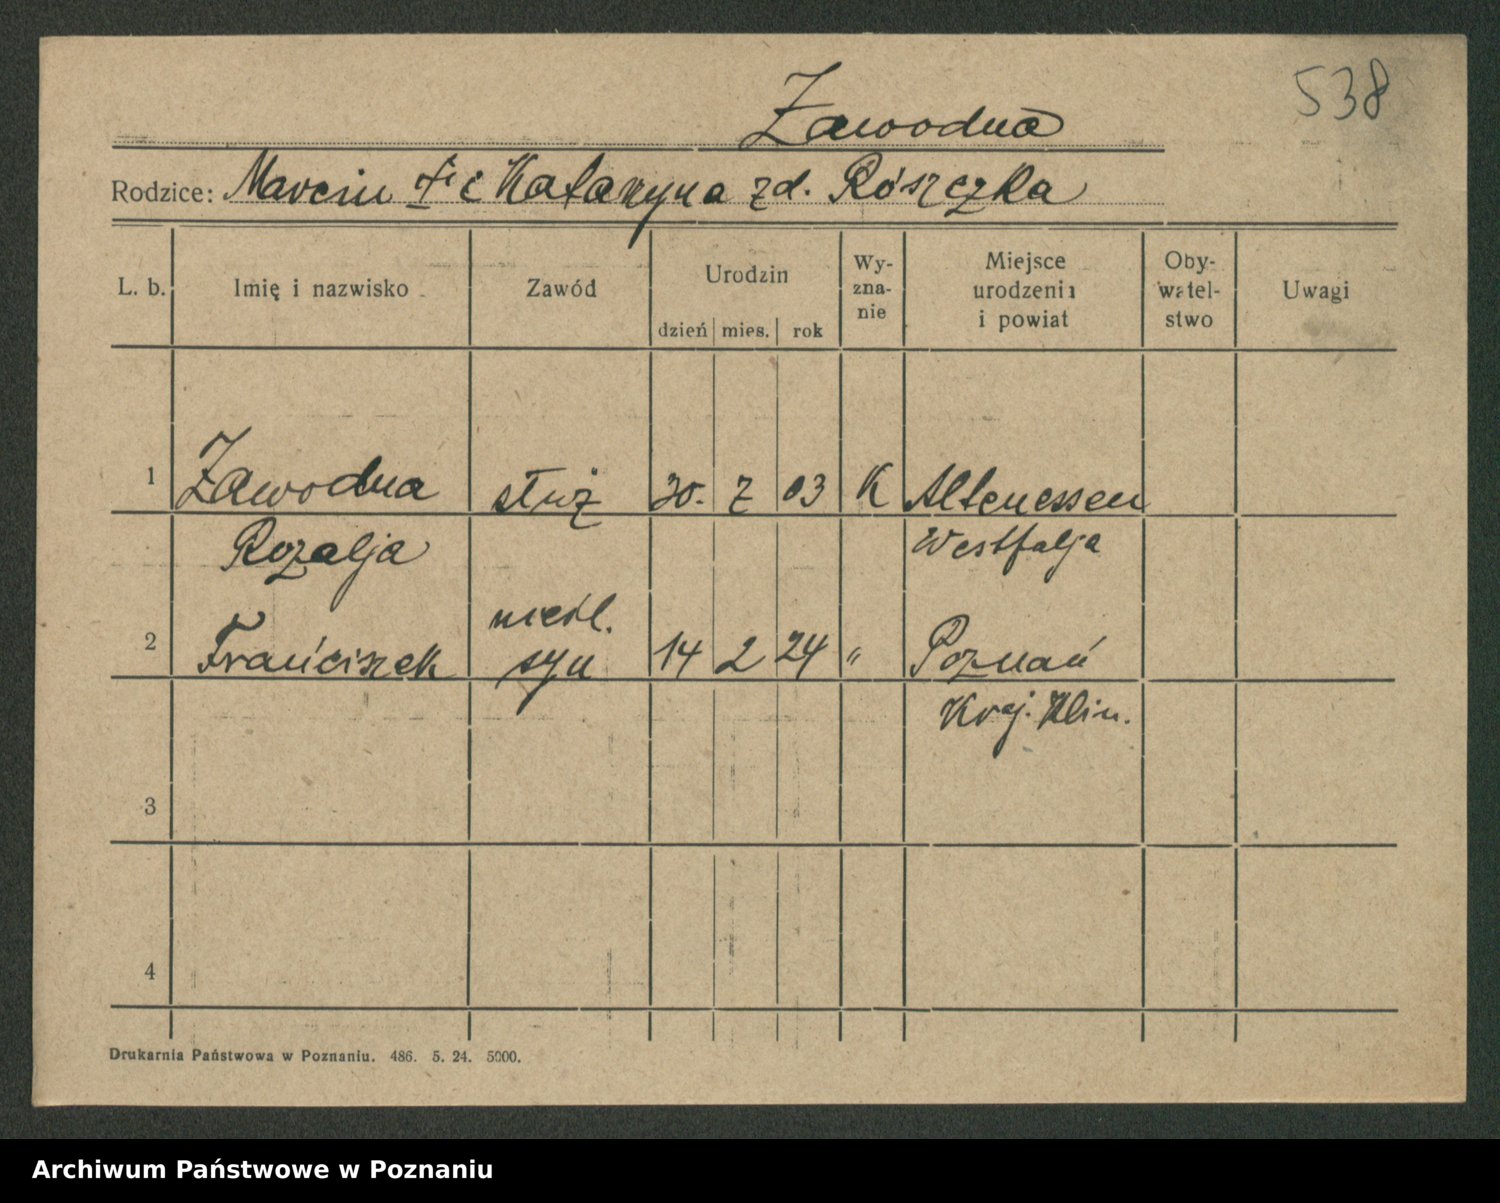 538
Zawodna
Rodzice: Marcin + i Katarzyna zd. Rószczka
L. b. Imię i nazwisko Zawód Urodzin dzień mies. rok Wy-zna-nie Miejsce urodzenia i powiat Oby-watel-stwo Uwagi
1 Zawodna służ 30. 7 03 K Altenessen
Rozalja Westfalja
nieśl.
2 Franciszek syn 14 2 24 " Poznań
Kraj. Klin.
3
4
Drukarnia Państwowa w Poznaniu. 486. 5. 24. 5000.
Archiwum Państwowe w Poznaniu